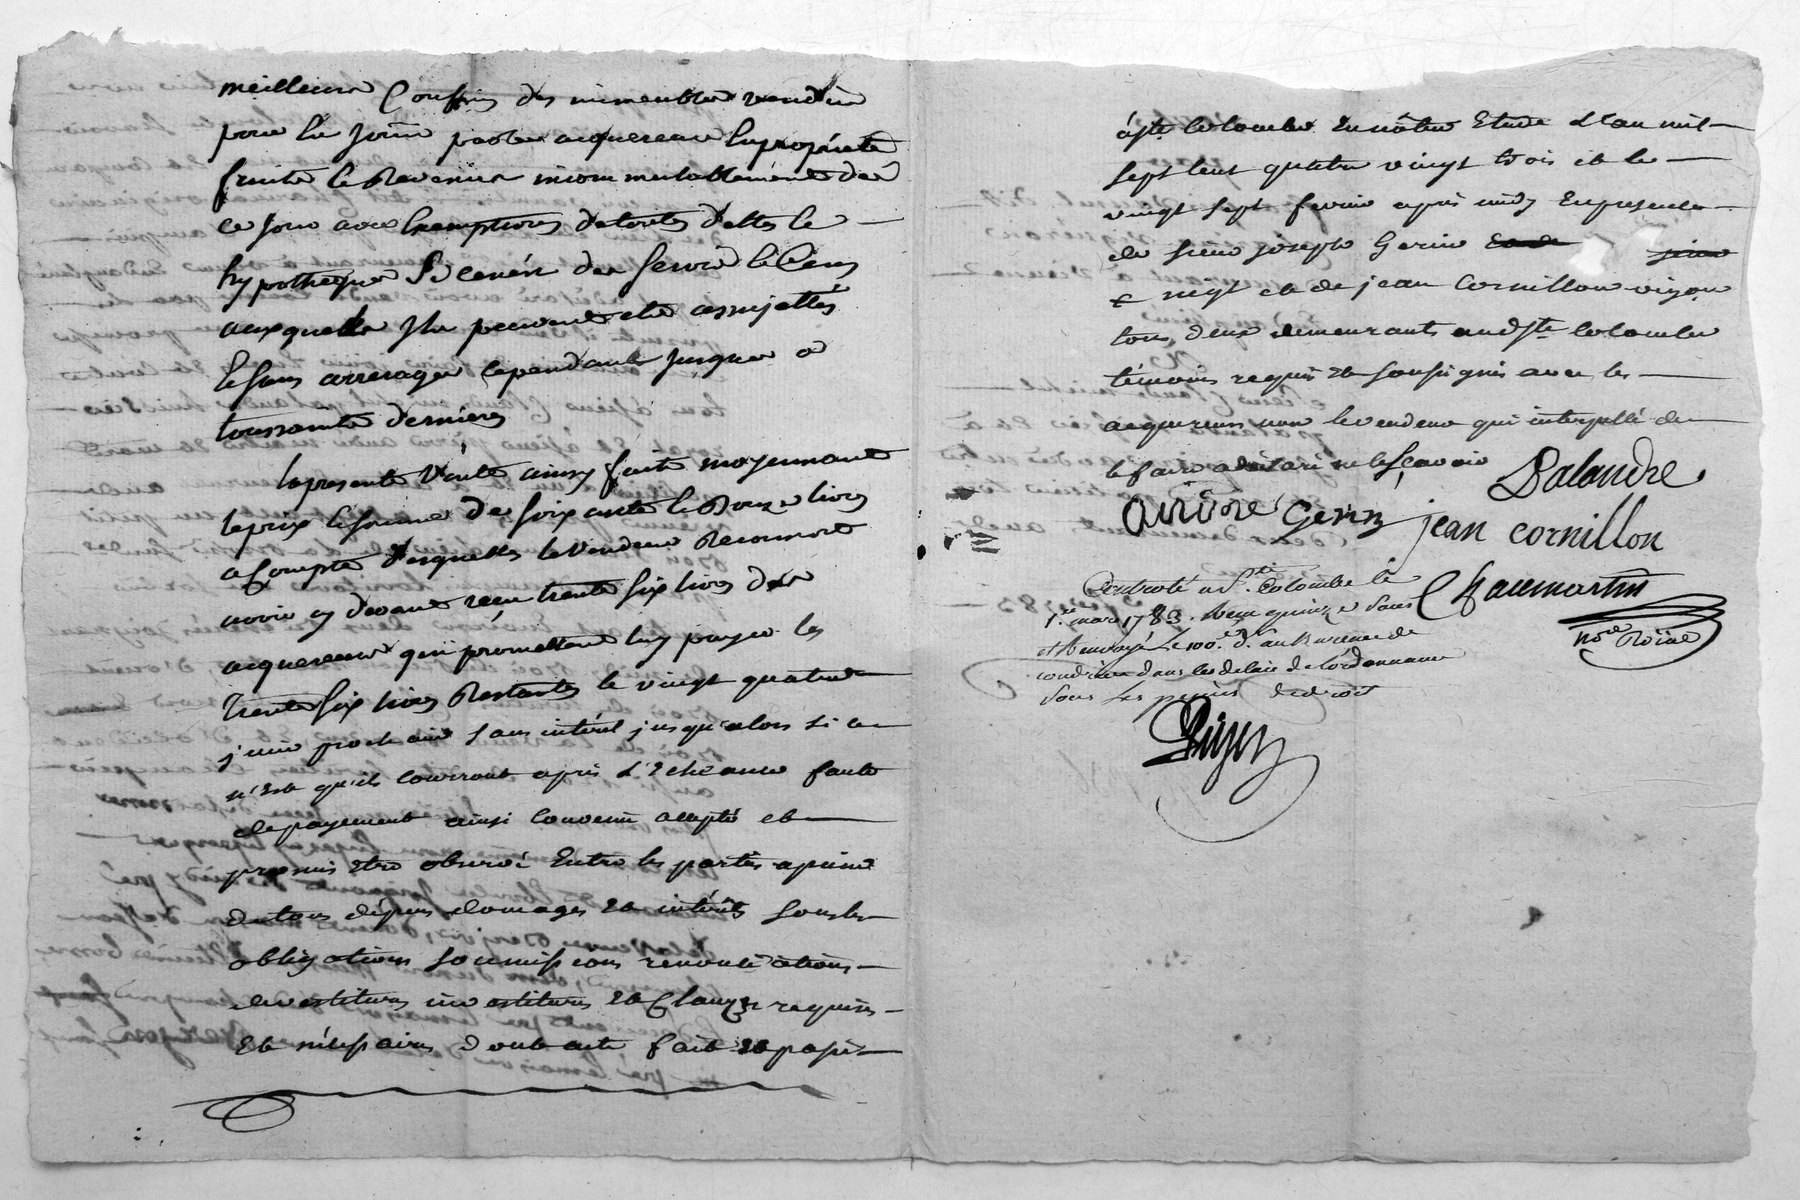 meilleurs Confins des immeubles vendus
pour lui jouir par les acquereurs la propriété
fruits & Revenus incommutablement dès
ce jour avec exemptions de toutes dettes &
hypotheques Si ce n'est des Servis & Cens
auxquels Ils peuvent etre assujettés
& sans arrerages cependant jusques a
toussaints derniers
la presente Vente ainsy faite moyennant
le prix & somme de soixante & Douze livres
a Compte desquelles le Vendeur Reconnoit
avoir cy devant reçu trente six livres des
acquereurs qui promettent luy payer les
trente six livres Restantes le vingt quatre
juin prochain sans intéret jusqu'alors si ce
n'est qu'ils courront après L'Echeance faute
de payement ainsi convenu accepté et
promis etre observé Entre les parties a peine
de tous dépens domages et intérêts sous les
obligations soumissions renonciations
devestitures investitures et Clauzes requises
et nécessaires dont acte fait et passé
à ste Colombe En nôtre Etude L'an mil
sept cent quatre vingt trois et le
vingt sept fevrier après midy En presence
de sieur joseph Gerin
negt et de jean Cornillon vigon
tous deux demeurants aud ste Colombe
témoins requis et soussignés avec les
acquereurs non le vendeur qui interpellé de
le faire a déclaré ne le sçavoir
Dalandre
Gerin jean cornillon
Controlé a Ste Colombe le
1er mars 1783. Reçu quinze sous
et Renvoyé Le 100e d. au Bureau de
condrieu dans les delais de l'ordonnance
sous Les peines de droit
Chaumartin
nore Roïal